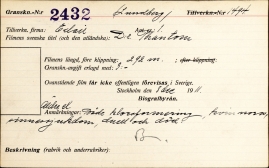 Granskn.-N:r 2432 Lundberg Tillverkn.-N:r 494
Tillverkn. firma: Edvie
Filmens svenska titel (och den utländska): De Phantom
Filmens längd, före klippning: 292 m. efter klippning:
Gransknings-avgift erlagd med:
Ovanstående film får icke offentligen förevisas i Sverige.
Stockholm den 1911.
Biografbyrån.
Anmärkningar: kloroformering, kvinnorov,
sinnessjukdom, duell och död.
B
Beskrivning (rubrik och underrubriker):